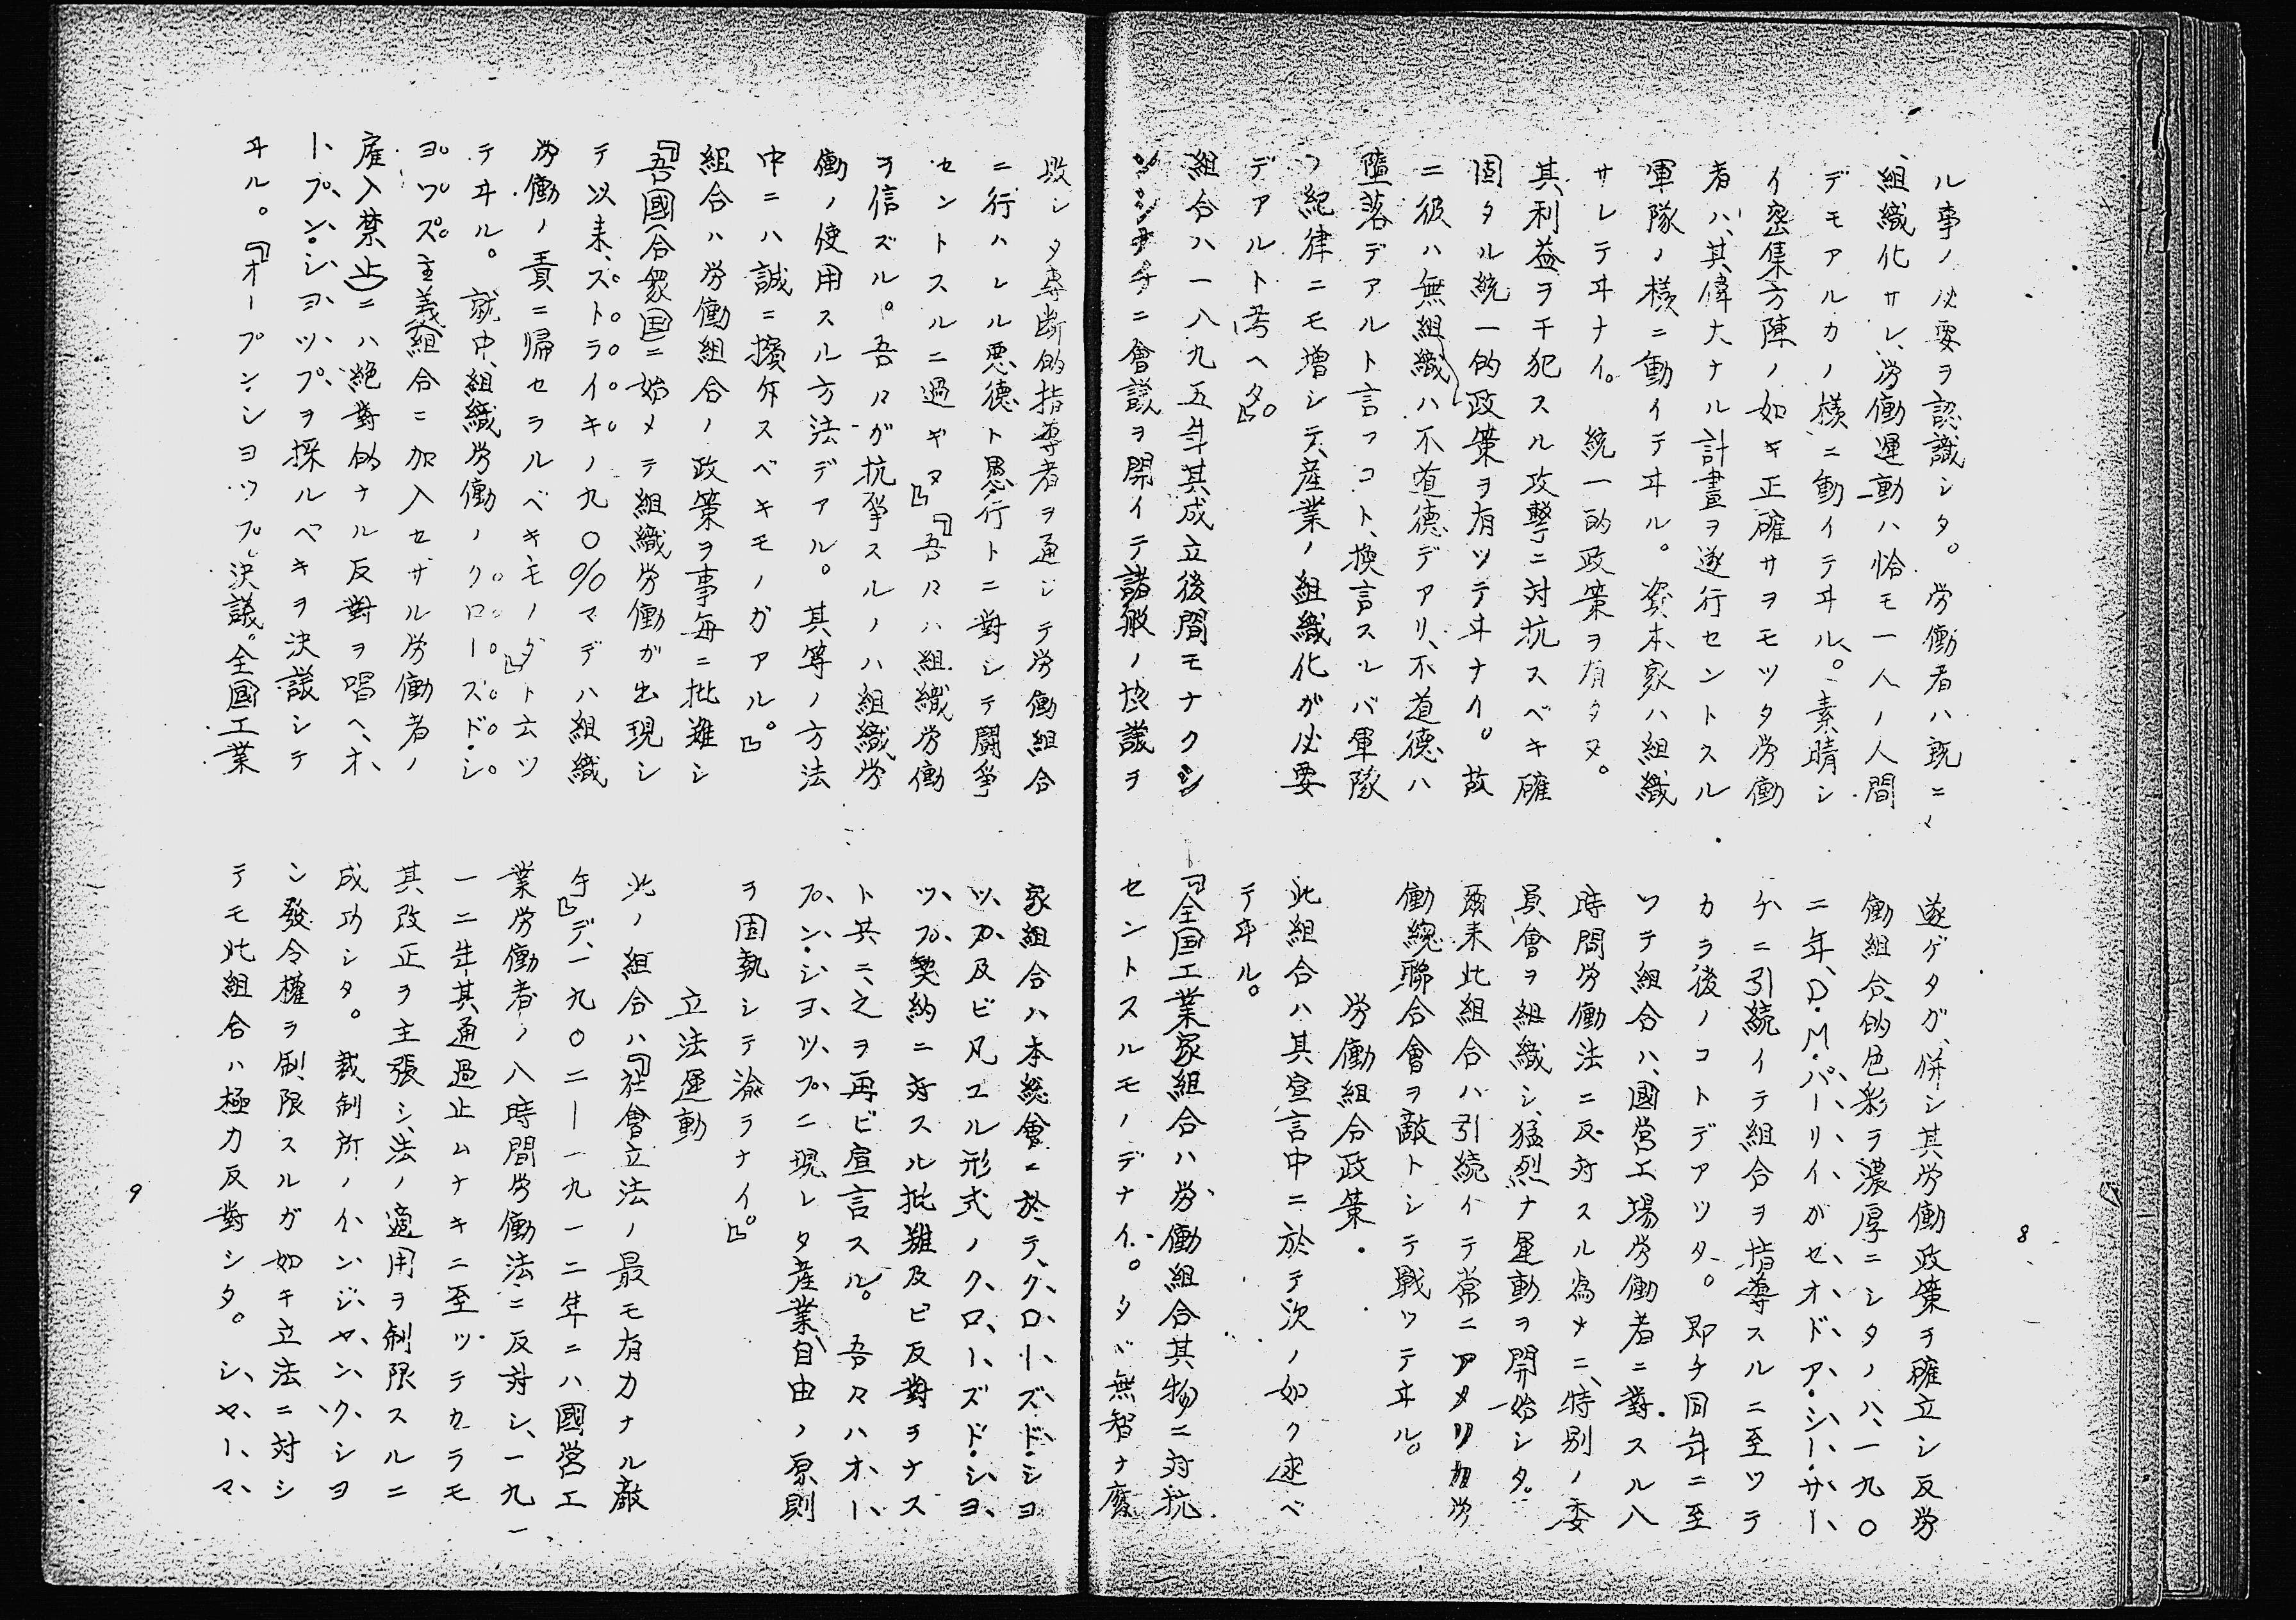 ル事ノ必要ヲ認識シタ。労働者ハ既ニ
組織化サレ、労働運動ハ恰モ一人ノ人間
デモアルカノ様ニ動イテヰル。素晴シ
イ密集方陣ノ如キ正確サヲモツタ労働
者ハ、其偉大ナル計畫ヲ遂行セントスル
軍隊ノ様ニ動イテヰル。資本家ハ組織
サレテヰナイ。統一的政策ヲ有タヌ。
其利益ヲ干犯スル攻撃ニ対抗スベキ確
固タル統一的政策ヲ有ツテヰナイ。故
ニ彼ハ無組織ハ不道德デアリ、不道德ハ
墮落デアルト言フコト、換言スレバ軍隊
ノ紀律ニモ増シテ、産業ノ組織化ガ必要
デアルト考ヘタ。』
組合ハ一八九五年其成立後間モナクシ
ンシナチニ會議ヲ開イテ諸般ノ协議ヲ
遂ゲタガ、併シ其労働政策ヲ確立シ反労
働組合的色彩ヲ濃厚ニシタノハ、一九〇
二年、D.M.パーリイガセオドア・シー・サー
チニ引続イテ組合ヲ指導スルニ至ツテ
カラ後ノコトデアツタ。即チ同年ニ至
ツテ組合ハ、國営工場労働者ニ對スル八
時間労働法ニ反対スル為メニ、特別ノ委
員會ヲ組織シ、猛烈ナ運動ヲ開始シタ。
爾来此組合ハ引続イテ常ニアメリカ労
働総聯合會ヲ敵トシテ戦ツテヰル。
労働組合政策.
此組合ハ其宣言中ニ於テ次ノ如ク述ベ
テヰル。
『全国工業家組合ハ労働組合其物ニ対抗
セントスルモノデナイ。タゞ無智ナ腐
8
敗シタ専断的指導者ヲ通シテ労働組合
ニ行ハレル悪德ト愚行トニ對シテ闘爭
セントスルニ過ギヌ』『吾々ハ組織労働
ヲ信ズル。吾々ガ抗爭スルノハ組織労
働ノ使用スル方法デアル。其等ノ方法
中ニハ誠ニ擯斥スベキモノガアル。』
組合ハ労働組合ノ政策ヲ事毎ニ批難シ
『吾國(合衆国)ニ始メテ組織労働ガ出現シ
テ以来、ストライキノ九〇%マデハ組織
労働ノ責ニ帰セラルベキモノダ』ト云ツ
テヰル。就中、組織労働ノクローズド・シ
ヨツプズ主義(組合ニ加入セザル労働者ノ
雇入禁止)ニハ絶對的ナル反對ヲ唱ヘ、オ
ープン・シヨツプヲ採ルベキヲ決議シテ
ヰル。『オープン・シヨツプ決議。全國工業
家組合ハ本総會ニ於テ、クローズド・シヨ
ツプ及ビ凡ユル形式ノクローズド・シヨ
ツプ契約ニ対スル批難及ビ反對ヲナス
ト共ニ、之ヲ再ビ宣言スル。吾々ハオー
プン・シヨツプニ現レタ産業自由ノ原則
ヲ固執シテ渝ラナイ。』
立法運動
此ノ組合ハ『社會立法ノ最モ有力ナル敵
手』デ、一九〇二ー一九一二年ニハ國営工
業労働者ノ八時間労働法ニ反対シ、一九一
一二年其通過止ムナキニ至ツテカラモ
其改正ヲ主張シ、法ノ適用ヲ制限スルニ
成功シタ。裁制所ノインジヤンクシヨ
ン發令權ヲ制限スルガ如キ立法ニ対シ
テモ此組合ハ極力反對シタ。シヤーマ
9